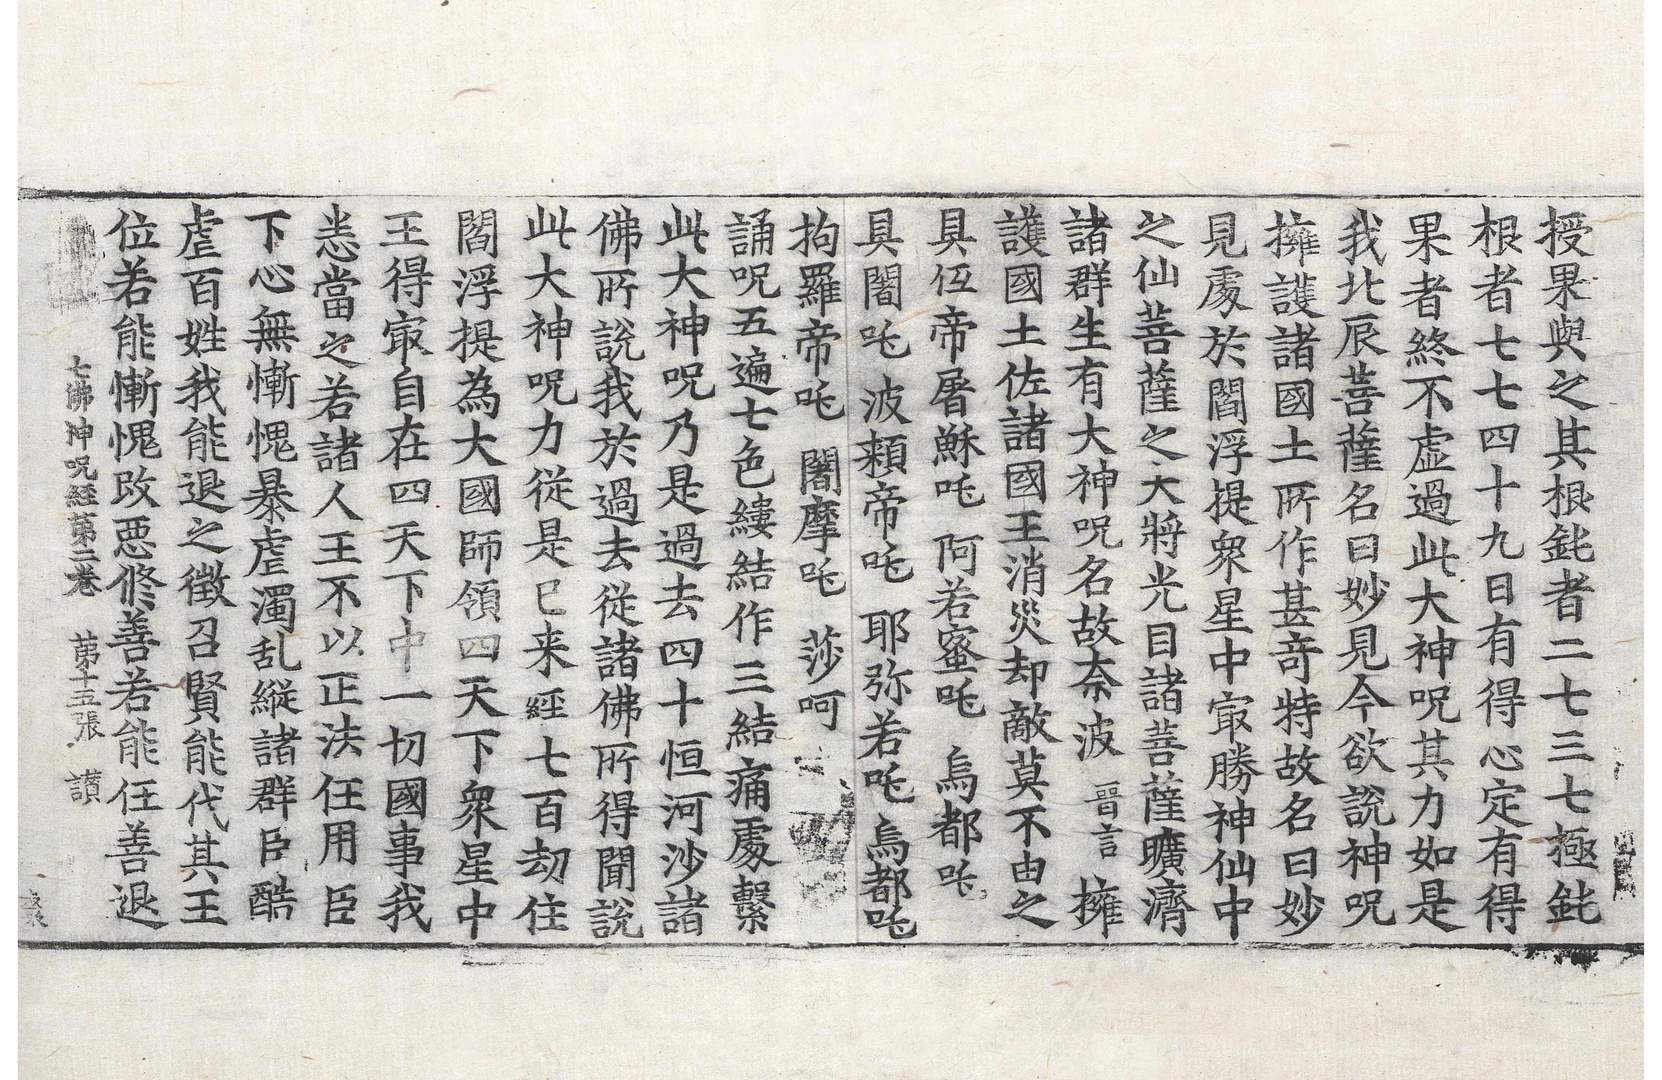 授果與之其根鈍者二七三七極鈍
根者七七四十九日有得心定有得
果者終不虛過此大神呪其力如是
我北辰菩薩名曰妙見今欲說神呪
擁護諸國土所作甚竒特故名曰妙
見處於閻浮提衆星中㝡勝神仙中
之仙菩薩之大將光目諸菩薩曠濟
諸群生有大神呪名故奈波 晉言 擁
護國土佐諸國王消災却敵莫不由之
具低帝屠蘇吒 阿若蜜吒 烏都吒
具閣吒 波賴帝吒 耶弥若吒烏都吒
拘羅帝吒 闍摩吒 莎呵
誦呪五遍七色縷結作三結痛處繫
此大神呪乃是過去四十恒河沙諸
佛所說我於過去從諸佛所得聞說
此大神呪力從是已来經七百刧住
閻浮提為大國師領四天下衆星中
王得㝡自在四天下中一切國事我
悉當之若諸人王不以正法任用臣
下心無慚愧暴虐濁乱縱諸群臣酷
虐百姓我能退之徵召賢能代其王
位若能慚愧改悪修善若能任善退
七佛神呪經第二卷 第十五張 讃